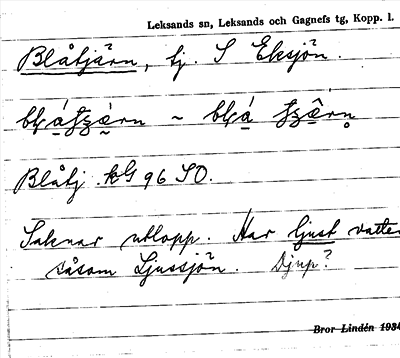 Leksands sn, Leksands och Gagnefs tg, Kopp. l.
Blåtjärn, tj. S Eksjön.
Blåtj. kG 96 SO.
Saknar utlopp. Har ljust vatten
såsom Ljussjön. Djup?
Bror Lindén 1934